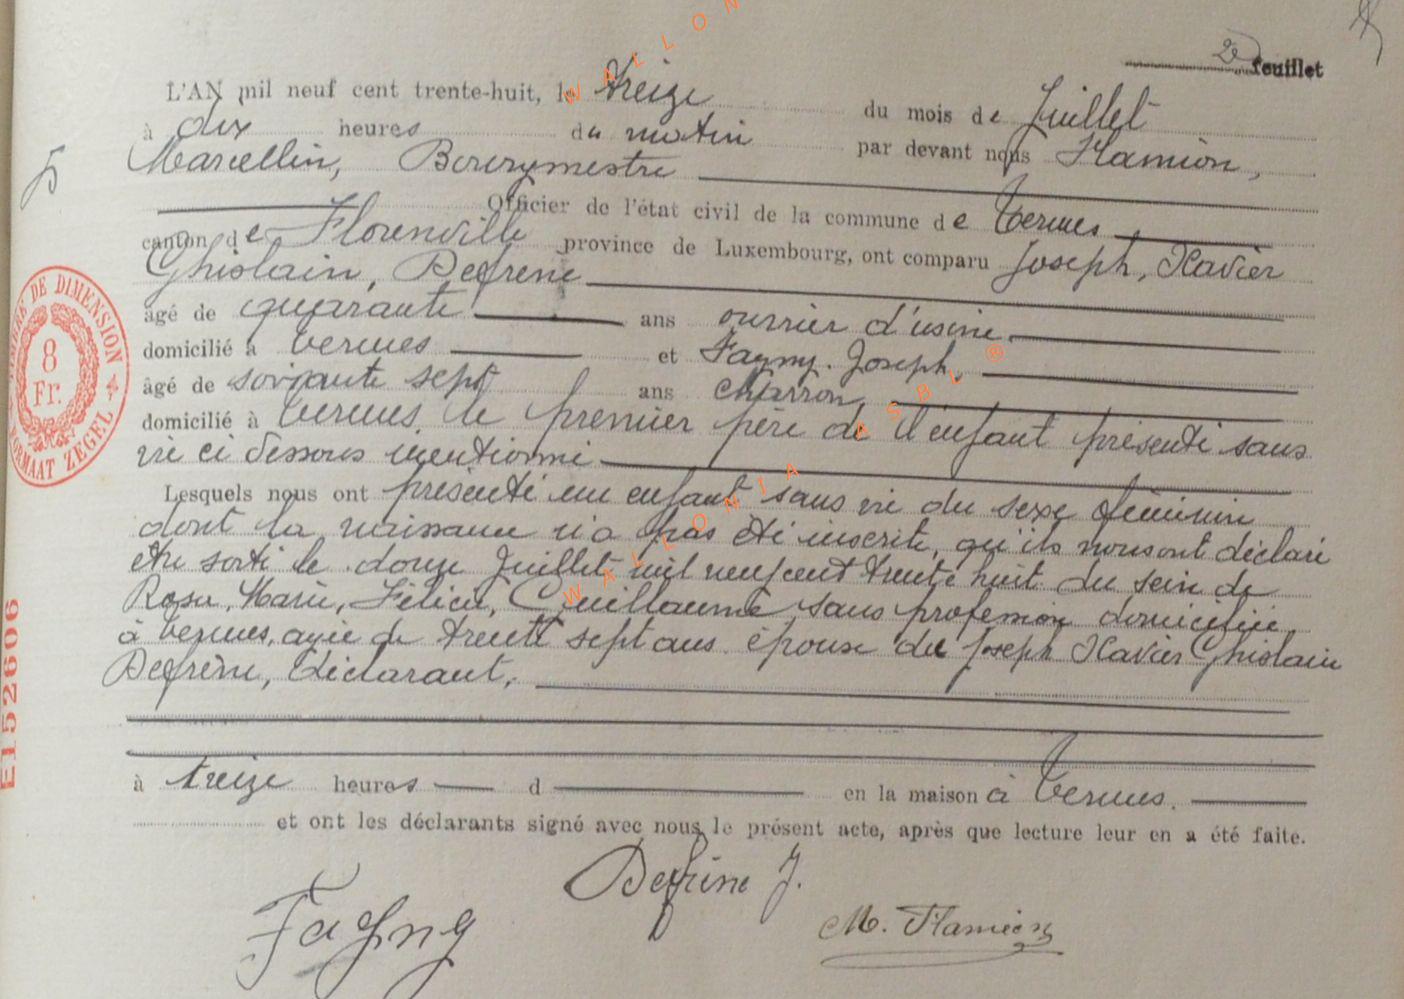 2e feuillet
L'AN mil neuf cent trente-huit, le treize du mois de Juillet
à dix heures du matin par devant nous Hamion,
Marcellin, Bourgmestre
Officier de l'état civil de la commune de Termes
canton de Florenville province de Luxembourg, ont comparu Joseph, Xavier
Ghislain, Defrène
âgé de quarante ans ouvrier d'usine
domicilié à Termes et Fagny. Joseph,
âgé de soixante sept ans charron,
domicilié à Termes, le premier père de l'enfant présenté sans
vie ci dessous mentionné
Lesquels nous ont présenté un enfant sans vie du sexe féminin
dont la naissance n'a pas été inscrite, qu'ils nous ont déclaré
être sorti le douze Juillet mil neuf cent trente huit du sein de
Rosa, Marie, Félicie, Guillaume, sans profession domiciliée
à Termes, agée de trente sept ans épouse de Joseph Xavier Ghislain
Defrène, déclarant,
à treize heures d en la maison à Termes.
et ont les déclarants signé avec nous le présent acte, après que lecture leur en a été faite.
Defrène J.
Fagny
M. Hamion
TIMBRE DE DIMENSION
8
Fr.
FORMAAT ZEGEL
E152606
WALLONIA ASBL ®
WALLON